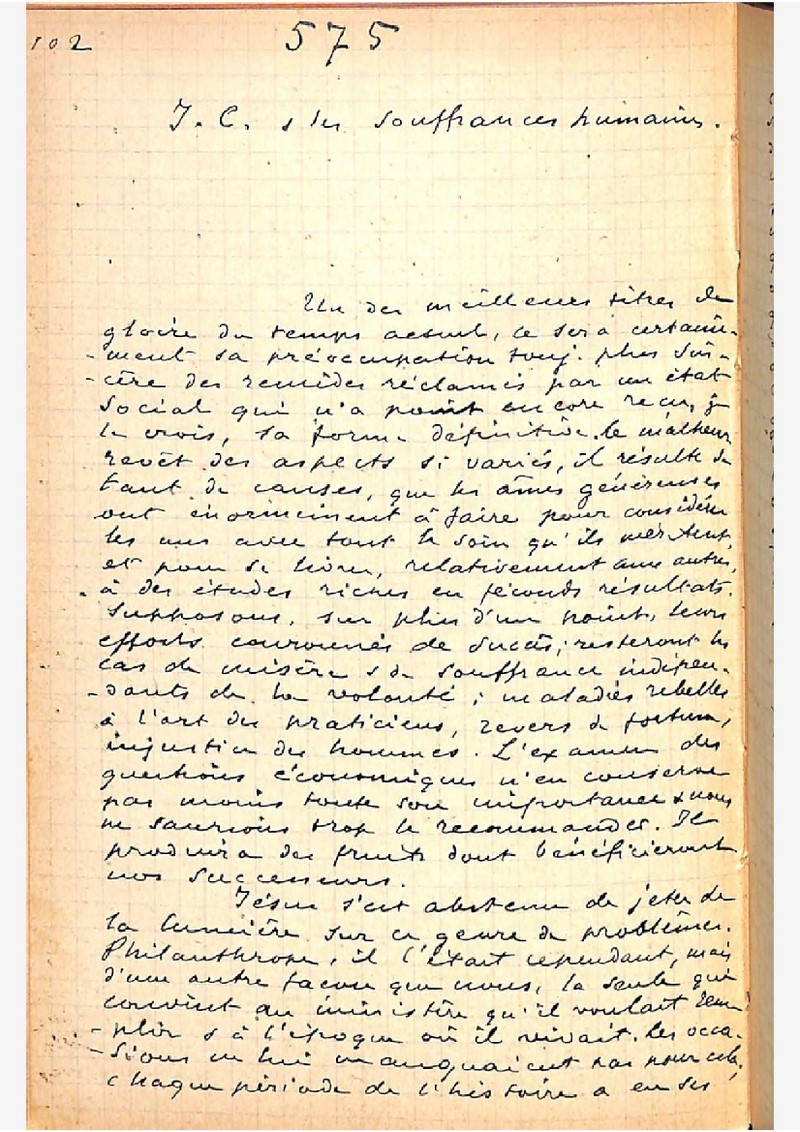 102
575
J. C. & les souffrances humaines.
Un des meilleurs titres de
gloire du temps actuel, ce sera certaine-
-ment sa préoccupation touj. plus sin-
-cère des remèdes réclamés par un état
social qui n'a point encore reçu, je
le crois, sa forme définitive. Le malheur
revêt des aspects si variés, il résulte de
tant de causes, que les âmes généreuses
ont énormément à faire pour considérer
les uns avec tout le soin qu'ils méritent
et pour se livrer, relativement aux autres,
à des études riches en féconds résultats.
Supposons, sur plus d'un point, leurs
efforts couronnés de succès; resteront les
cas de misère & de souffrance indépen-
-dants de la volonté; maladies rebelles
à l'art des praticiens, revers de fortune,
injustice des hommes. L'examen des
questions économiques n'en conserve
pas moins toute son importance & nous
ne saurions trop le recommander. Il
produira des fruits dont bénéficieront
nos successeurs.
Jésus s'est abstenu de jeter de
la lumière sur ce genre de problèmes.
Philanthrope, il l'était cependant, mais
d'une autre façon que nous, la seule qui
convînt au ministère qu'il voulait rem-
-plir & à l'époque où il vivait. Les occa-
-sions ne lui manquaient pas pour cela;
chaque période de l'histoire a eu ses